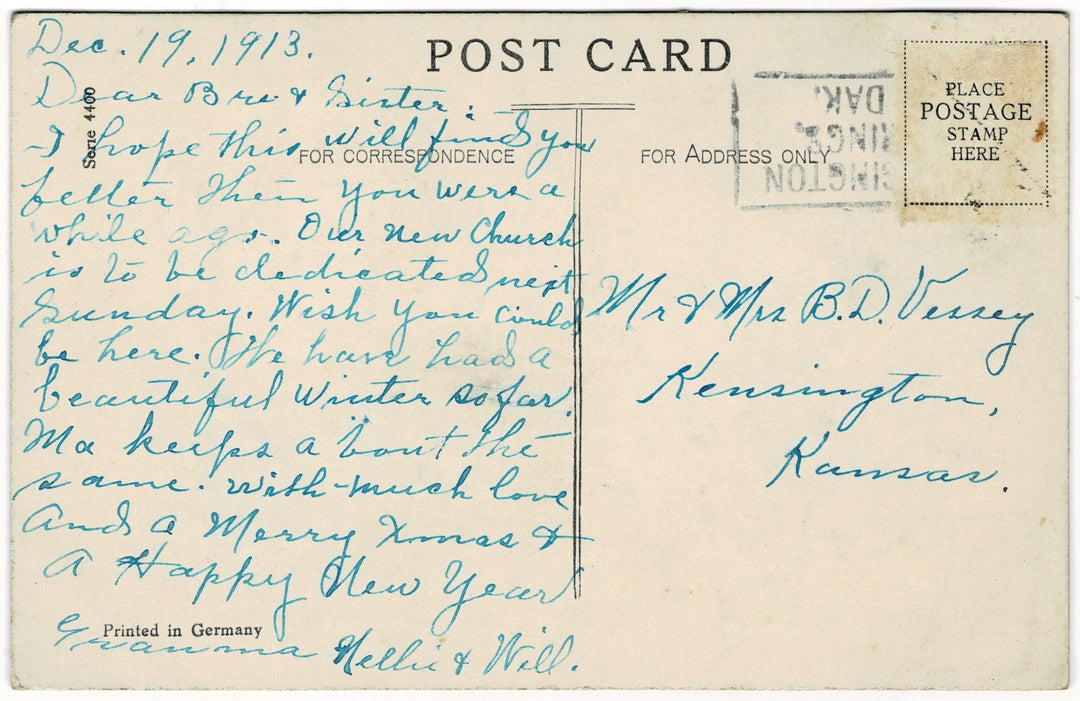 Dec. 19, 1913.
POST CARD
Dear Bro & Sister:
Serie 4400
I hope this will find you
FOR CORRESPONDENCE
better then you were a
while ago. Our new Church
is to be dedicated next
Sunday. Wish you could
be here. We have had a
beautiful winter so far.
Ma keeps a bout the
same. with much love
And a Merry Xmas &
A Happy New Year
Printed in Germany
Granma Nellie & Will.
SINGTON
RINGS,
DAK.
PLACE
POSTAGE
STAMP
HERE
FOR ADDRESS ONLY
Mr & Mrs B.D. Vessey
Kensington,
Kansas.